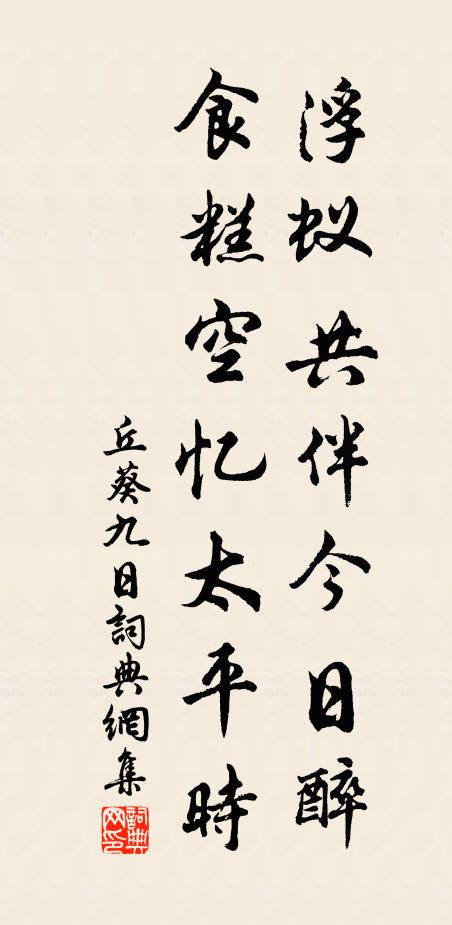 浮蚁共伴今日醉
食糕空忆太平时
丘葵九日詞典網集
詞典
网印